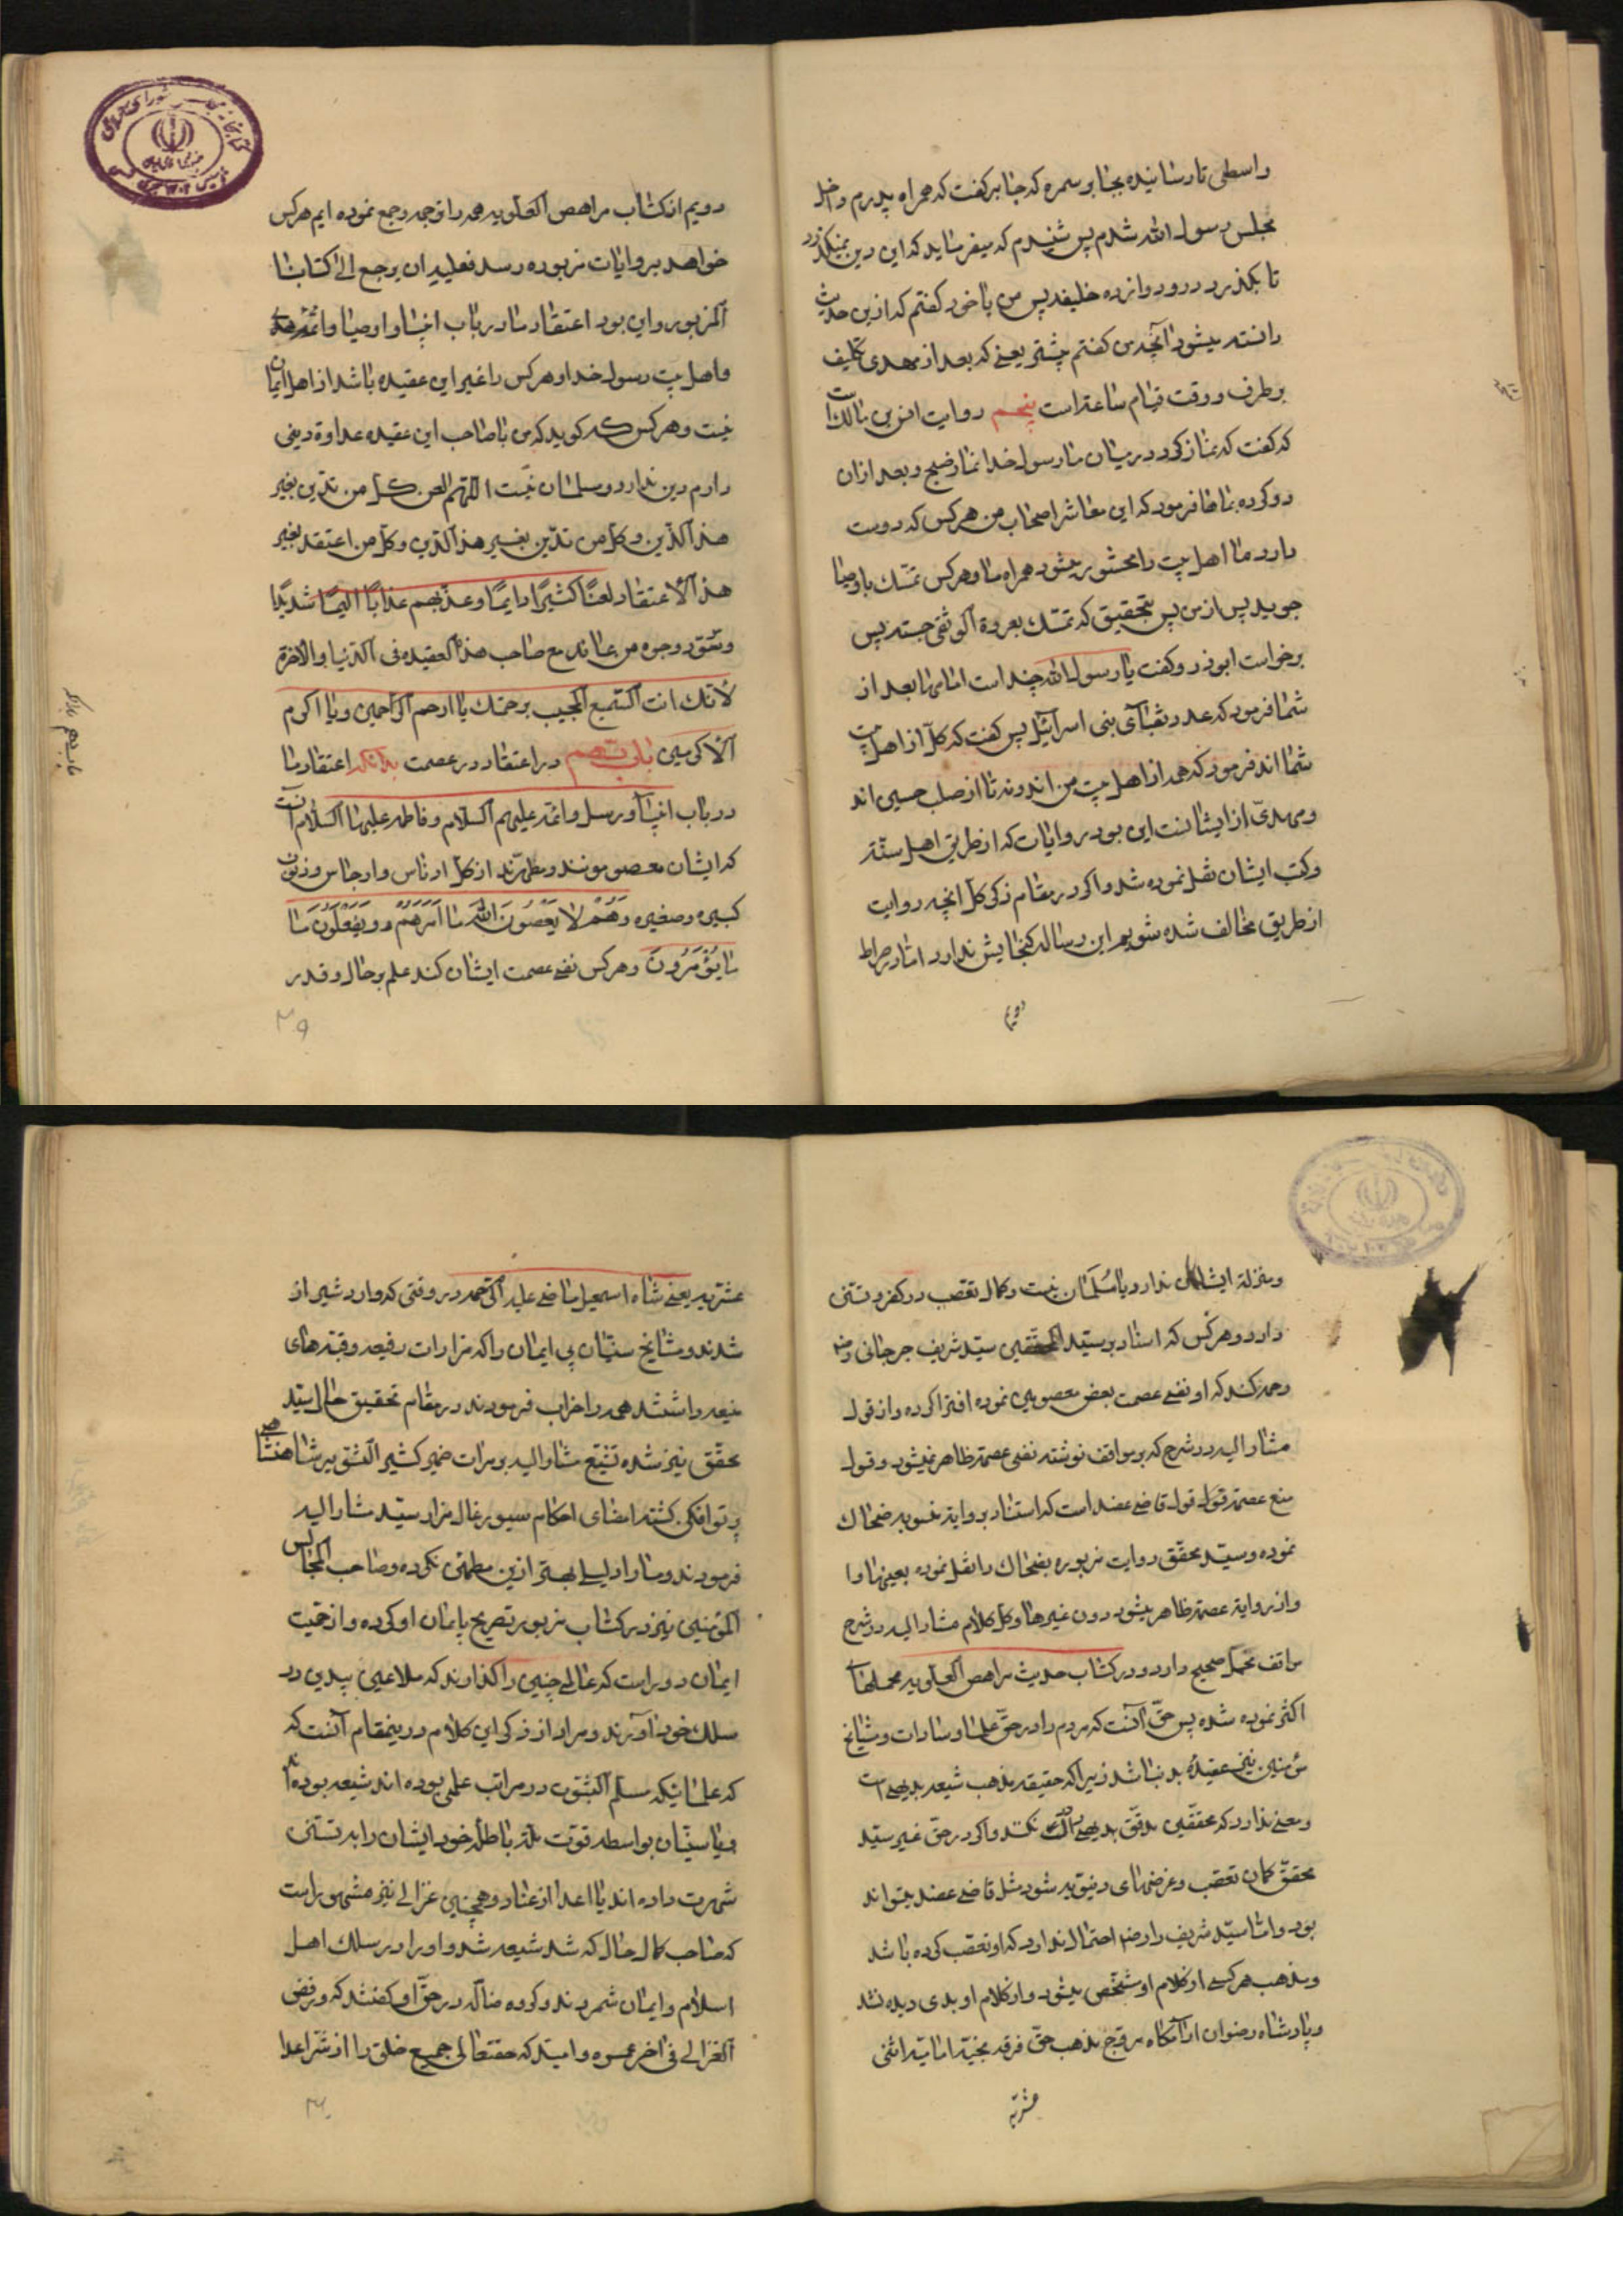 واسطی تا رسانیده بجابر سمره که جابر کفت که همراه پدرم داخل
مجلس رسول الله شدم پس شنیدم که میفرماید که این دین نمیکذرد
تا بکذرد درو دوازده خلیفه پس من با خود کفتم که ازین حدیث
دانسته میشود آنچه من کفتم پیشتر یعنی که بعد از مهدی تکلیف
برطرف و وقت قیام ساعتست پنجم روایت انس بن مالک است
که کفت که نماز کرد در میان ما رسول خدا نماز صبح و بعد ازان
رو کرده بماها فرمود که ای معاشر اصحاب من هر کس که دوست
دارد ما اهل بیت را محشور میشود همراه ما و هر کس تمسک باوصیا
جوید پس از من پس بتحقیق که تمسک بعروة الوثقی جسته پس
برخواست ابوذر و کفت یا رسول الله چند است امامها بعد از
شما فرمود که عدد نقبآی بنی اسرآئیل پس کفت که کل از اهل بیت
شما اند فرمود که همه از اهل بیت من اند و نه تا از صلب حسین اند
و مهدی از ایشانست این بود روایات که از طریق اهل سنة
و کتب ایشان نقل نموده شد و اکر در مقام ذکر کل آنچه روایت
از طریق مخالف شده شویم این رساله کنجایش ندارد اما در صراط
دویم
دویم از کتاب مراهص العلویه همه را ترجمه و جمع نموده ایم هر کس
خواهد بروایات مزبوره رسد فعلیه ان یرجع الی کتابنا
المزبور و این بود اعتقاد ما در باب انبیا و اوصیا و ائمه هدی
و اهل بیت رسول خدا و هر کس را غیر این عقیده باشد از اهل ایمان
نیست و هر کس که کوید که من با صاحب این عقیده عداوة دینی
دارم دین ندارد و مسلمان نیست اللهم العن کل من تدین بغیر
هذا الدین و کل من تدین بغیر هذا الدین و کل من اعتقد بغیر
هذا الاعتقاد لعنًا کثیرًا دایمًا و عذبهم عذابًا الیمًا شدیدًا
و سود وجوه من عاند مع صاحب هذا العقیده فی الدنیا والاخرة
لانک انت السمیع المجیب برحمتک یا ارحم الراحمین و یا اکرم
الاکرمین باب نهم در اعتقاد در عصمت بدانکه اعتقاد ما
در باب انبیآ و رسل و ائمه علیهم السلام و فاطمه علیها السلام آنست
که ایشان معصومونند و مطهرند از کل ادناس و ارجاس و ذنوب
کبیره و صغیره وَهُمْ لا یَعْصُونَ اللهَ ما اَمَرَهُمْ وَ یَفْعَلُونَ ما
ما یُؤمَرُونَ و هر کس نفی عصمت ایشان کند علم بر حال و قدر
۳۹
و منزلة ایشان ندارد یا مُسلمان نیست و کمال تعصب در کفر و تسنن
دارد و هر کس که اسناد بر سید المحققین سید شریف جرجانی رضی
وحمه کند که او نفی عصمت بعض معصومین نموده افترا کرده و از قول
مشار الیه در شرح که بر مواقف نوشته نفی عصمة ظاهر نمیشود و قول
منع عصمة قول قاضی عضد است که استناد بروایة منسوبه بضحاک
نموده و سید محقق روایت مزبوره بضحاک را نقل نموده بعینها و ا
و از روایة عصمة ظاهر میشود دون غیرها و کل کلام مشار الیه در شرح
مواقف محمل صحیح دارد و در کتاب حدیث مراهص العلویه محملهای
اکثر نموده شده پس حق آنست که مردم را در حق علما و سادات و مشایخ
مؤمنین نیز عقیدهٔ بد نباشد زیرا که حقیقة مذهب شیعه بدیهی است
و معنی ندارد که محققین مدقق بدیهی درک نکند و اکر در حق غیر سید
محقق کمان تعصب و غرضهای دنیویه شود مثل قاضی عضد میتواند
بود و اما سید شریف را رضی احتمال ندارد که او تعصب کرده باشد
و مذهب هر کسی از کلام او مشخص میشود و از کلام او بدی دیده نشد
و پادشاه رضوان ارامکاه مروج مذهب حق فرقه نجیه امامیه اثنی
عشریه
عشریه یعنی شاه اسمعیل ماضی علیه الرحمه در وقتی که وارد شیراز
شدند و مشایخ سنیان بی ایمان را که مزارات رفیعه و قبه های
منیعه داشتند همه را خراب فرمودند در مقام تحقیق حال سید
محقق نیز شده تتبع مشار الیه بر مرات ضمیر کثیر الشوق شاهنشاهی
پرتو افکن کشته امضای احکام سیورغال مزار سید مشار الیه
فرمودند و ما را دلیلی بهتر ازین مطمئن نکرده و صاحب المجالس
المؤمنین نیز در کتاب مزبور تصریح بایمان او کرده و از حمیت
ایمان دور است که عالمی چنین را کذارند که ملاعین بیدین در
سلک خود آورند و مراد از ذکر این کلام درینمقام آنست که
که علمائیکه مسلم الثبوت در مراتب علمی بوده اند شیعه بوده اند
و یا سنیان بواسطه قوت ملة باطله خود ایشان را بد تسنن
شهرت داده اند یا اعدا از عناد و همچنین غزالی نیز مشهور است
که صاحب کمال حال که شد شیعه شد و او را در سلک اهل
اسلام و ایمان شمردند و کروه ضاله در حق او کفتند که و رفض
الغزالی فی اخر عمره و امید که حقتعالی جمیع خلق را از شر اعدا
۴۰